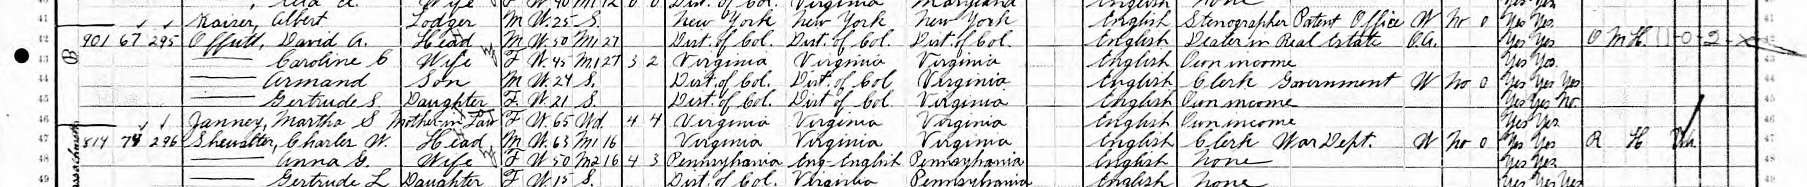 Wife F W 40 M1 12 0 0 Dist. of Col. Virginia Maryland English
41 Kaiser, Albert Lodger M W. 25 S. New York New York New York English Stenographer Patent Office W No 0 Yes Yes 41
42 901 67 295 Offutt, David A. Head M W. 50 M1 27 Dist. of Col. Dist. of Col. Dist. of Col. English Dealer in Real Estate O.A. Yes Yes O M H.
43 B Caroline C Wife F W. 45 M1 27 3 2 Virginia Virginia Virginia English Own income Yes Yes. 43
44 Armand Son M W. 24 S. Dist. of Col. Dist. of Col Virginia English Clerk Government W No 0 Yes Yes Yes 44
45 Gertrude S. Daughter F W. 21 S. Dist. of Col. Dist. of Col Virginia English Own income Yes Yes No. 45
46 Janney, Martha S Mother-in Law F W. 65 Wd. 4 4 Virginia Virginia Virginia English Own income Yes Yes 46
47 814 74 296 Charles W. Head M W. 63 M1 16 Virginia Virginia Virginia English Clerk War Dept. W No 0 Yes Yes R H 47
48 Anna G. Wife F W. 50 M2 16 4 3 Pennsylvania Eng-English Pennsylvania English None Yes Yes 48
49 Gertrude L Daughter F W. 15 S. Dist. of Col. Virginia Pennsylvania English None Yes Yes Yes 49